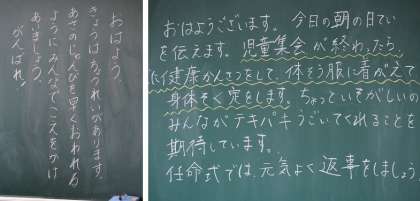 おはよう。
きょうはちょうれいがあります。
あさのじゅんびを早くおわれる
ようにみんなでこえをかけ
あいましょう。
がんばれ!
おはようございます。今日の朝の日てい
を伝えます。児童集会が終わったら、
に健康かんさつをして、体そう服に着がえて
身体そく定をします。ちょっといそがしいの
みんながテキパキうごいてくれることを
期待しています。
任命式では、元気よく返事をしましょう